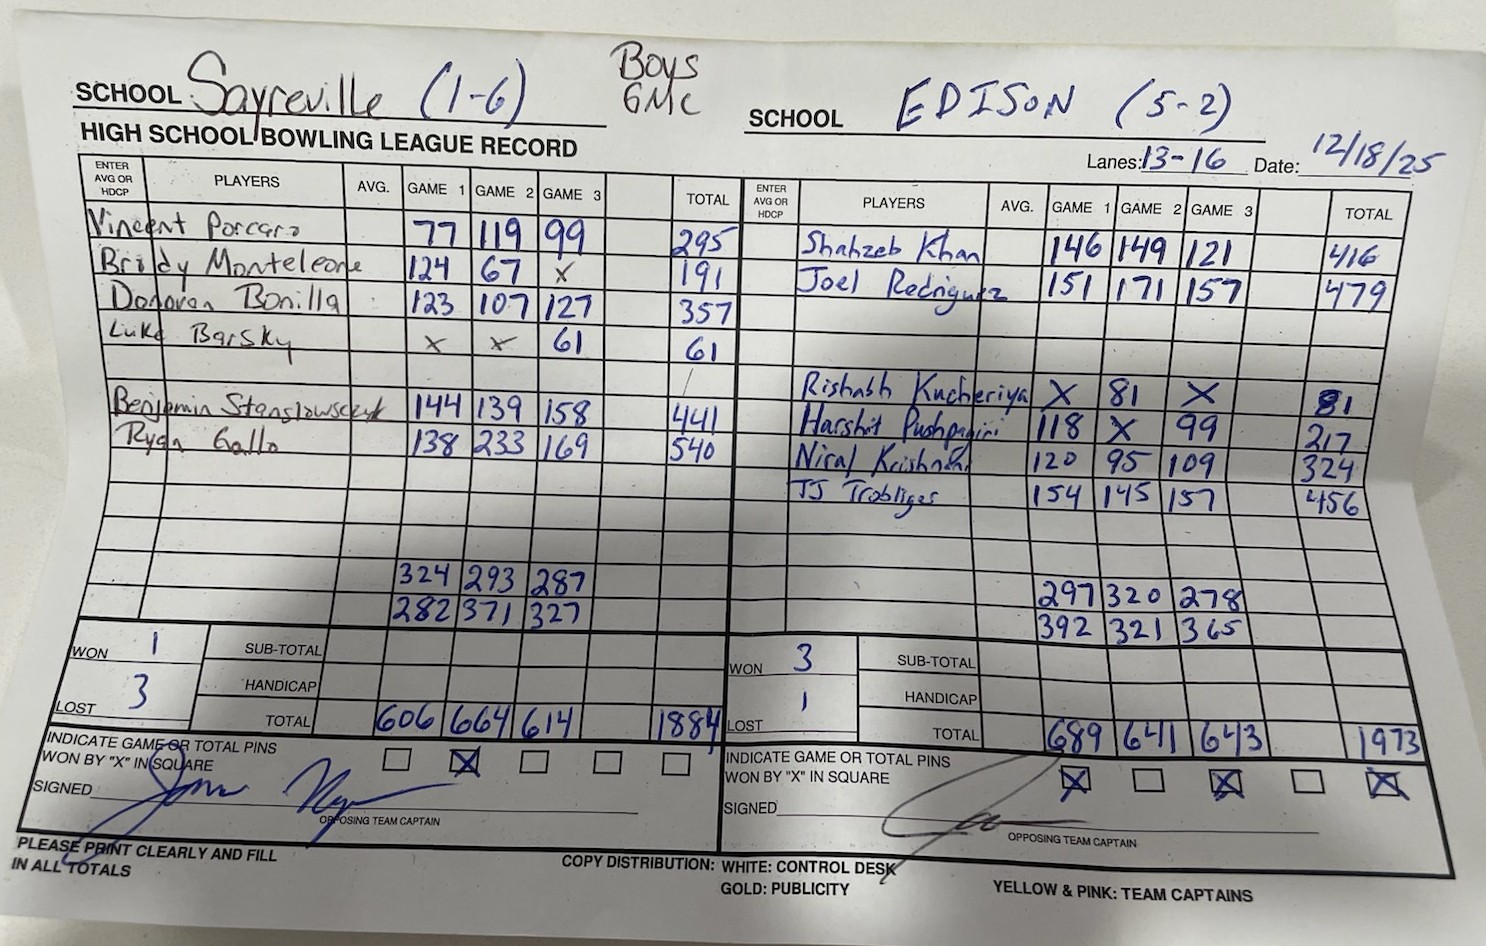 Boys
GMC
SCHOOL Sayreville (1-6)
SCHOOL EDISON (5-2)
HIGH SCHOOL BOWLING LEAGUE RECORD
Lanes: 13-16 Date: 12/18/25
ENTER AVG OR HDCP PLAYERS AVG. GAME 1 GAME 2 GAME 3 TOTAL
Vincent Porcaro 77 119 99 295
Briddy Monteleone 124 67 X 191
Donovan Bonilla 123 107 127 357
Luke Barsky X X 61 61
Benjamin 144 139 158 441
Ryan Gallo 138 233 169 540
324 293 287
282 371 327
WON 1 SUB-TOTAL
HANDICAP
LOST 3
TOTAL 606 664 614 1884
INDICATE GAME OR TOTAL PINS
WON BY "X" IN SQUARE X
SIGNED
OPPOSING TEAM CAPTAIN
ENTER AVG OR HDCP PLAYERS AVG. GAME 1 GAME 2 GAME 3 TOTAL
Shahzeb Khan 146 149 121 416
Joel Rodriguez 151 171 157 479
Rishabh Kucheriya X 81 X 81
Harshit 118 X 99 217
Niral Krishnan 120 95 109 324
TJ Trobliger 154 145 157 456
297 320 278
392 321 365
WON 3 SUB-TOTAL
HANDICAP
LOST 1
TOTAL 689 641 643 1973
INDICATE GAME OR TOTAL PINS
WON BY "X" IN SQUARE X X X
SIGNED
OPPOSING TEAM CAPTAIN
PLEASE PRINT CLEARLY AND FILL
IN ALL TOTALS
COPY DISTRIBUTION: WHITE: CONTROL DESK
GOLD: PUBLICITY
YELLOW & PINK: TEAM CAPTAINS